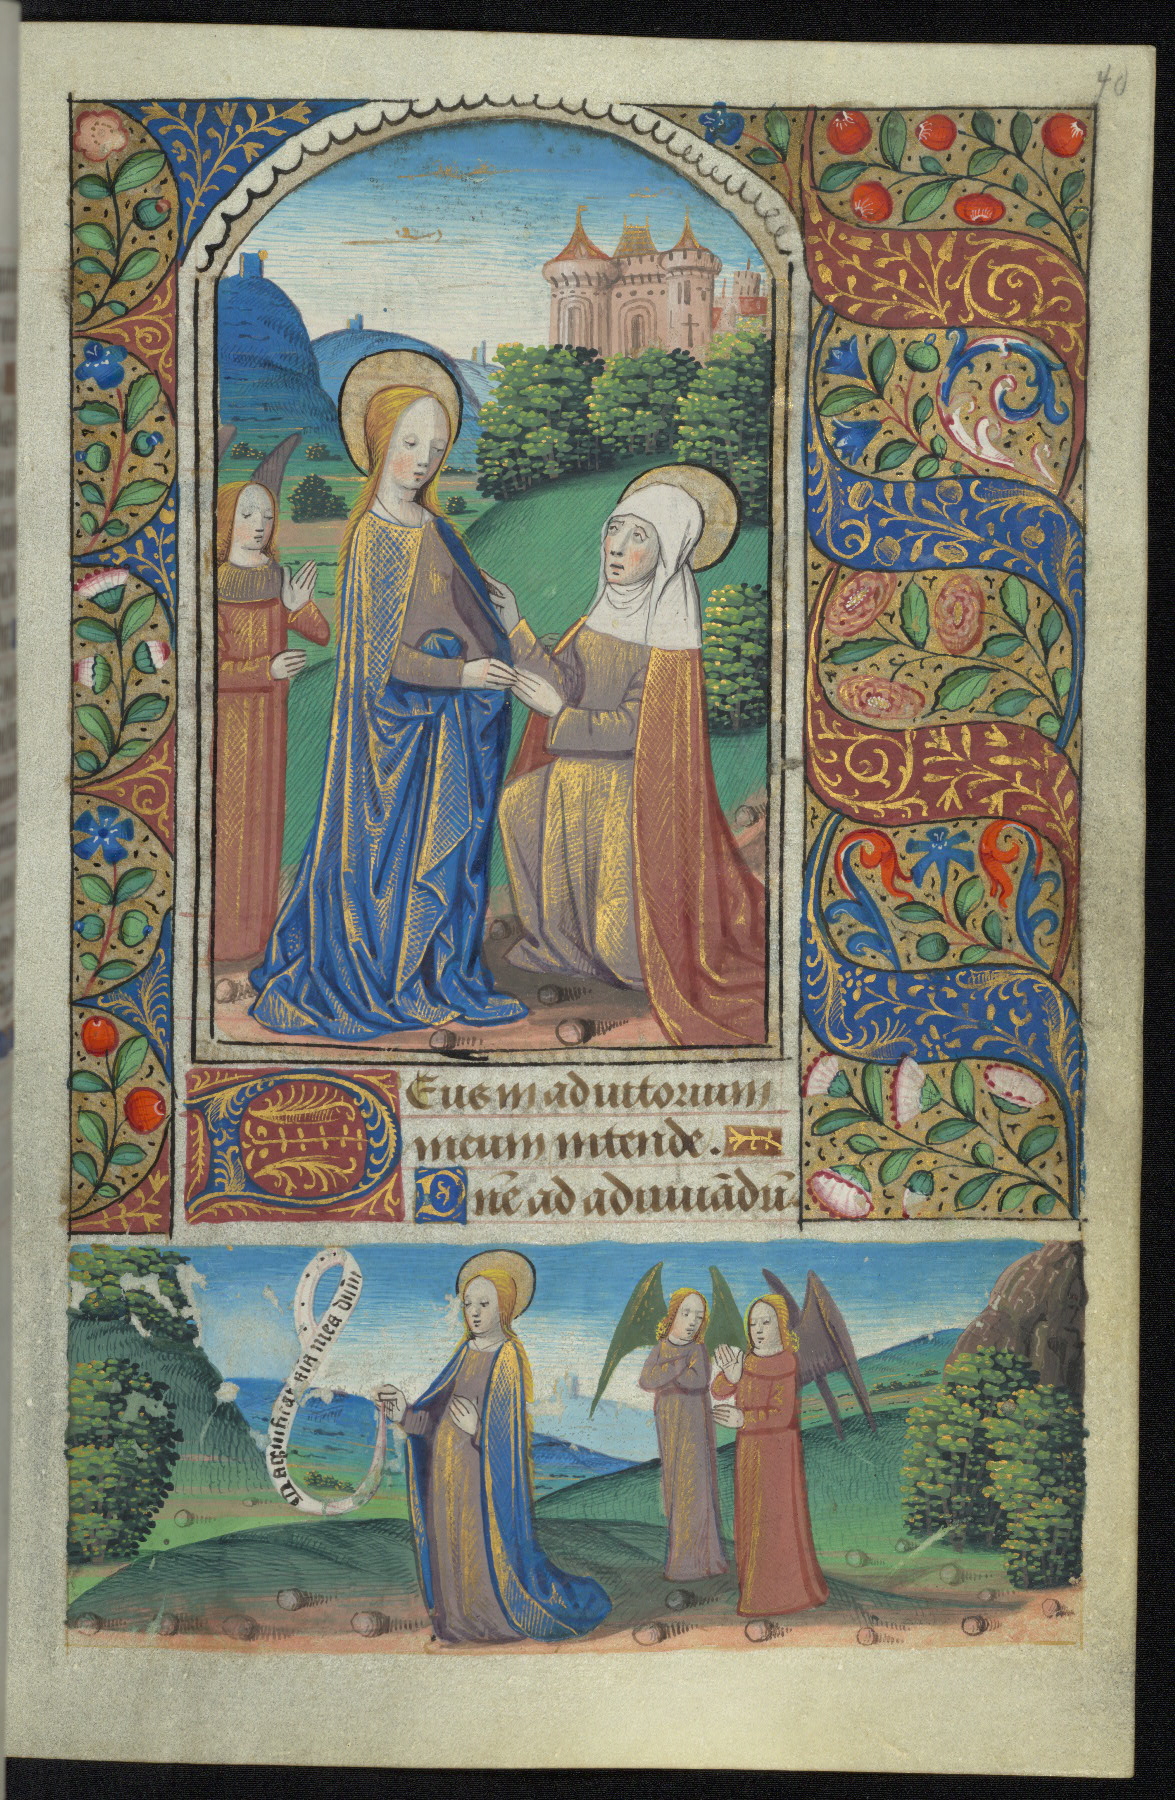 40
Deus in adiutorium
meum intende.
Dñe ad adiuuãdũ
Magnificat aĩa mea dũm